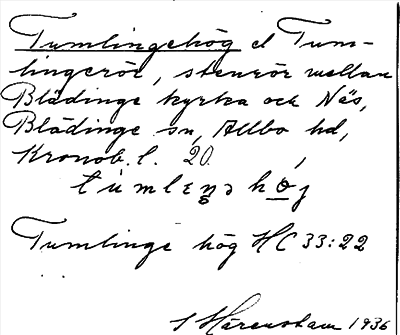 Tumlingehög el Tum-
lingerör, stenrör mellan
Blädinge kyrka och Näs,
Blädinge sn, Allbo hd,
Kronob. l. 20.
Tumlinge hög HC 33:22
1936